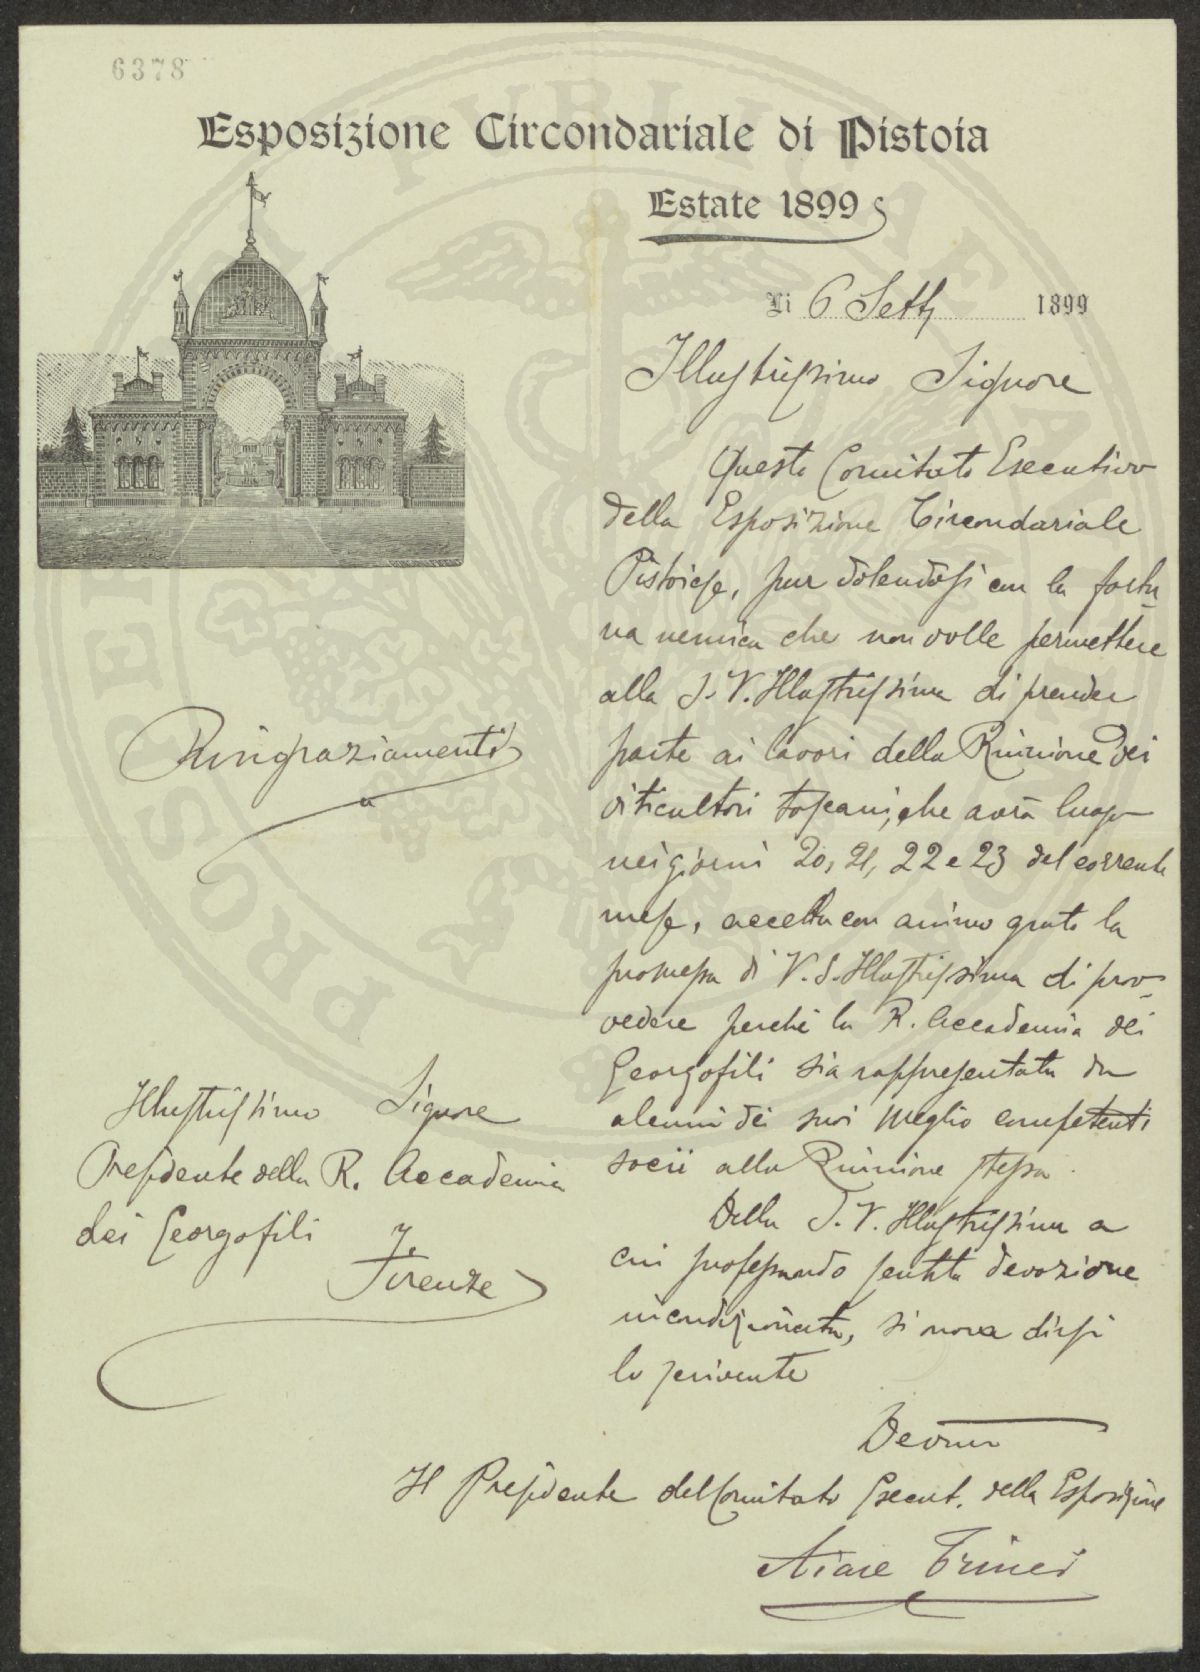 6378
Esposizione Circondariale di Pistoia
Estate 1899
Li 6 Settb 1899
Illustrissimo Signore
Questo Comitato Esecutivo
della Esposizione Circondariale
Pistoiese, pur dolendosi con la fortu-
na nemica che non volle permettere
alla S. V. Illustrissima di prender
parte ai lavori della Riunione dei
viticultori toscani, che avrà luogo
nei giorni 20, 21, 22 e 23 del corrente
mese, accetta con animo grato la
promessa di V. S. Illustrissima di prov-
vedere perché la R. Accademia dei
Georgofili sia rappresentata da
alcuni dei suoi meglio competenti
socii alla Riunione stessa.
Della S. V. Illustrissima a
cui professando sentita devozione
incondizionata, si onora dirsi
lo scrivente
Devmo
Il Presidente del Comitato Esecut. della Esposizione
Trinci
Ringraziamenti
Illustrissimo Signore
Presidente della R. Accademia
dei Georgofili
Firenze